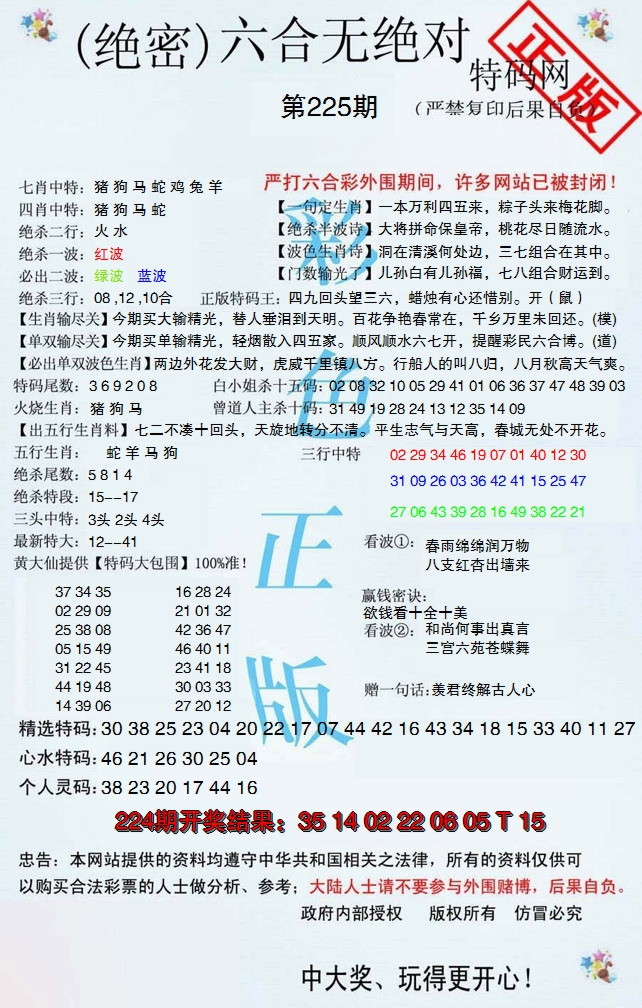 (绝密)六合无绝对
特码网
正版
第225期
(严禁复印后果自负)
七肖中特：猪 狗 马 蛇 鸡 兔 羊
严打六合彩外围期间，许多网站已被封闭！
四肖中特：猪 狗 马 蛇
【一句定生肖】一本万利四五来，粽子头来梅花脚。
绝杀二行：火 水
【绝杀半波诗】大将拼命保皇帝，桃花尽日随流水。
绝杀一波：红波
【波色生肖诗】洞在清溪何处边，三七组合在其中。
必出二波：绿波 蓝波
【门数输光了】儿孙白有儿孙福，七八组合财运到。
绝杀三行：08 ,12 ,10合
正版特码王：四九回头望三六，蜡烛有心还惜别。开（鼠）
【生肖输尽关】今期买大输精光，替人垂泪到天明。百花争艳春常在，千乡万里未回还。(模)
【单双输尽关】今期买单输精光，轻烟散入四五家。顺风顺水六七开，提醒彩民六合博。(道)
【必出单双波色生肖】两边外花发大财，虎威千里镇八方。行船人的叫八归，八月秋高天气爽。
特码尾数：3 6 9 2 0 8
白小姐杀十五码：02 08 32 10 05 29 41 01 06 36 37 47 48 39 03
火烧生肖：猪 狗 马
曾道人主杀十码：31 49 19 28 24 13 12 35 14 09
【出五行生肖料】七二不凑十回头，天旋地转分不清。平生志气与天高，春城无处不开花。
五行生肖： 蛇 羊 马 狗
三行中特 02 29 34 46 19 07 01 40 12 30
绝杀尾数：5 8 1 4
31 09 26 03 36 42 41 15 25 47
绝杀特段：15--17
三头中特：3头 2头 4头
27 06 43 39 28 16 49 38 22 21
最新特大：12--41
看波①：春雨绵绵润万物
八支红杏出墙来
黄大仙提供【特码大包围】100%准！
37 34 35 16 28 24
02 29 09 21 01 32
25 38 08 42 36 47
05 15 49 46 40 11
31 22 45 23 41 18
44 19 48 30 03 33
14 39 06 27 20 12
赢钱密诀：
欲钱看十全十美
看波②：和尚何事出真言
三宫六苑苍蝶舞
赠一句话：羡君终解古人心
彩色正版
精选特码：30 38 25 23 04 20 22 17 07 44 42 16 43 34 18 15 33 40 11 27
心水特码：46 21 26 30 25 04
个人灵码：38 23 20 17 44 16
224期开奖结果：35 14 02 22 06 05 T 15
忠告：本网站提供的资料均遵守中华共和国相关之法律，所有的资料仅供可
以购买合法彩票的人士做分析、参考；大陆人士请不要参与外围赌博，后果自负。
政府内部授权 版权所有 仿冒必究
中大奖、玩得更开心！